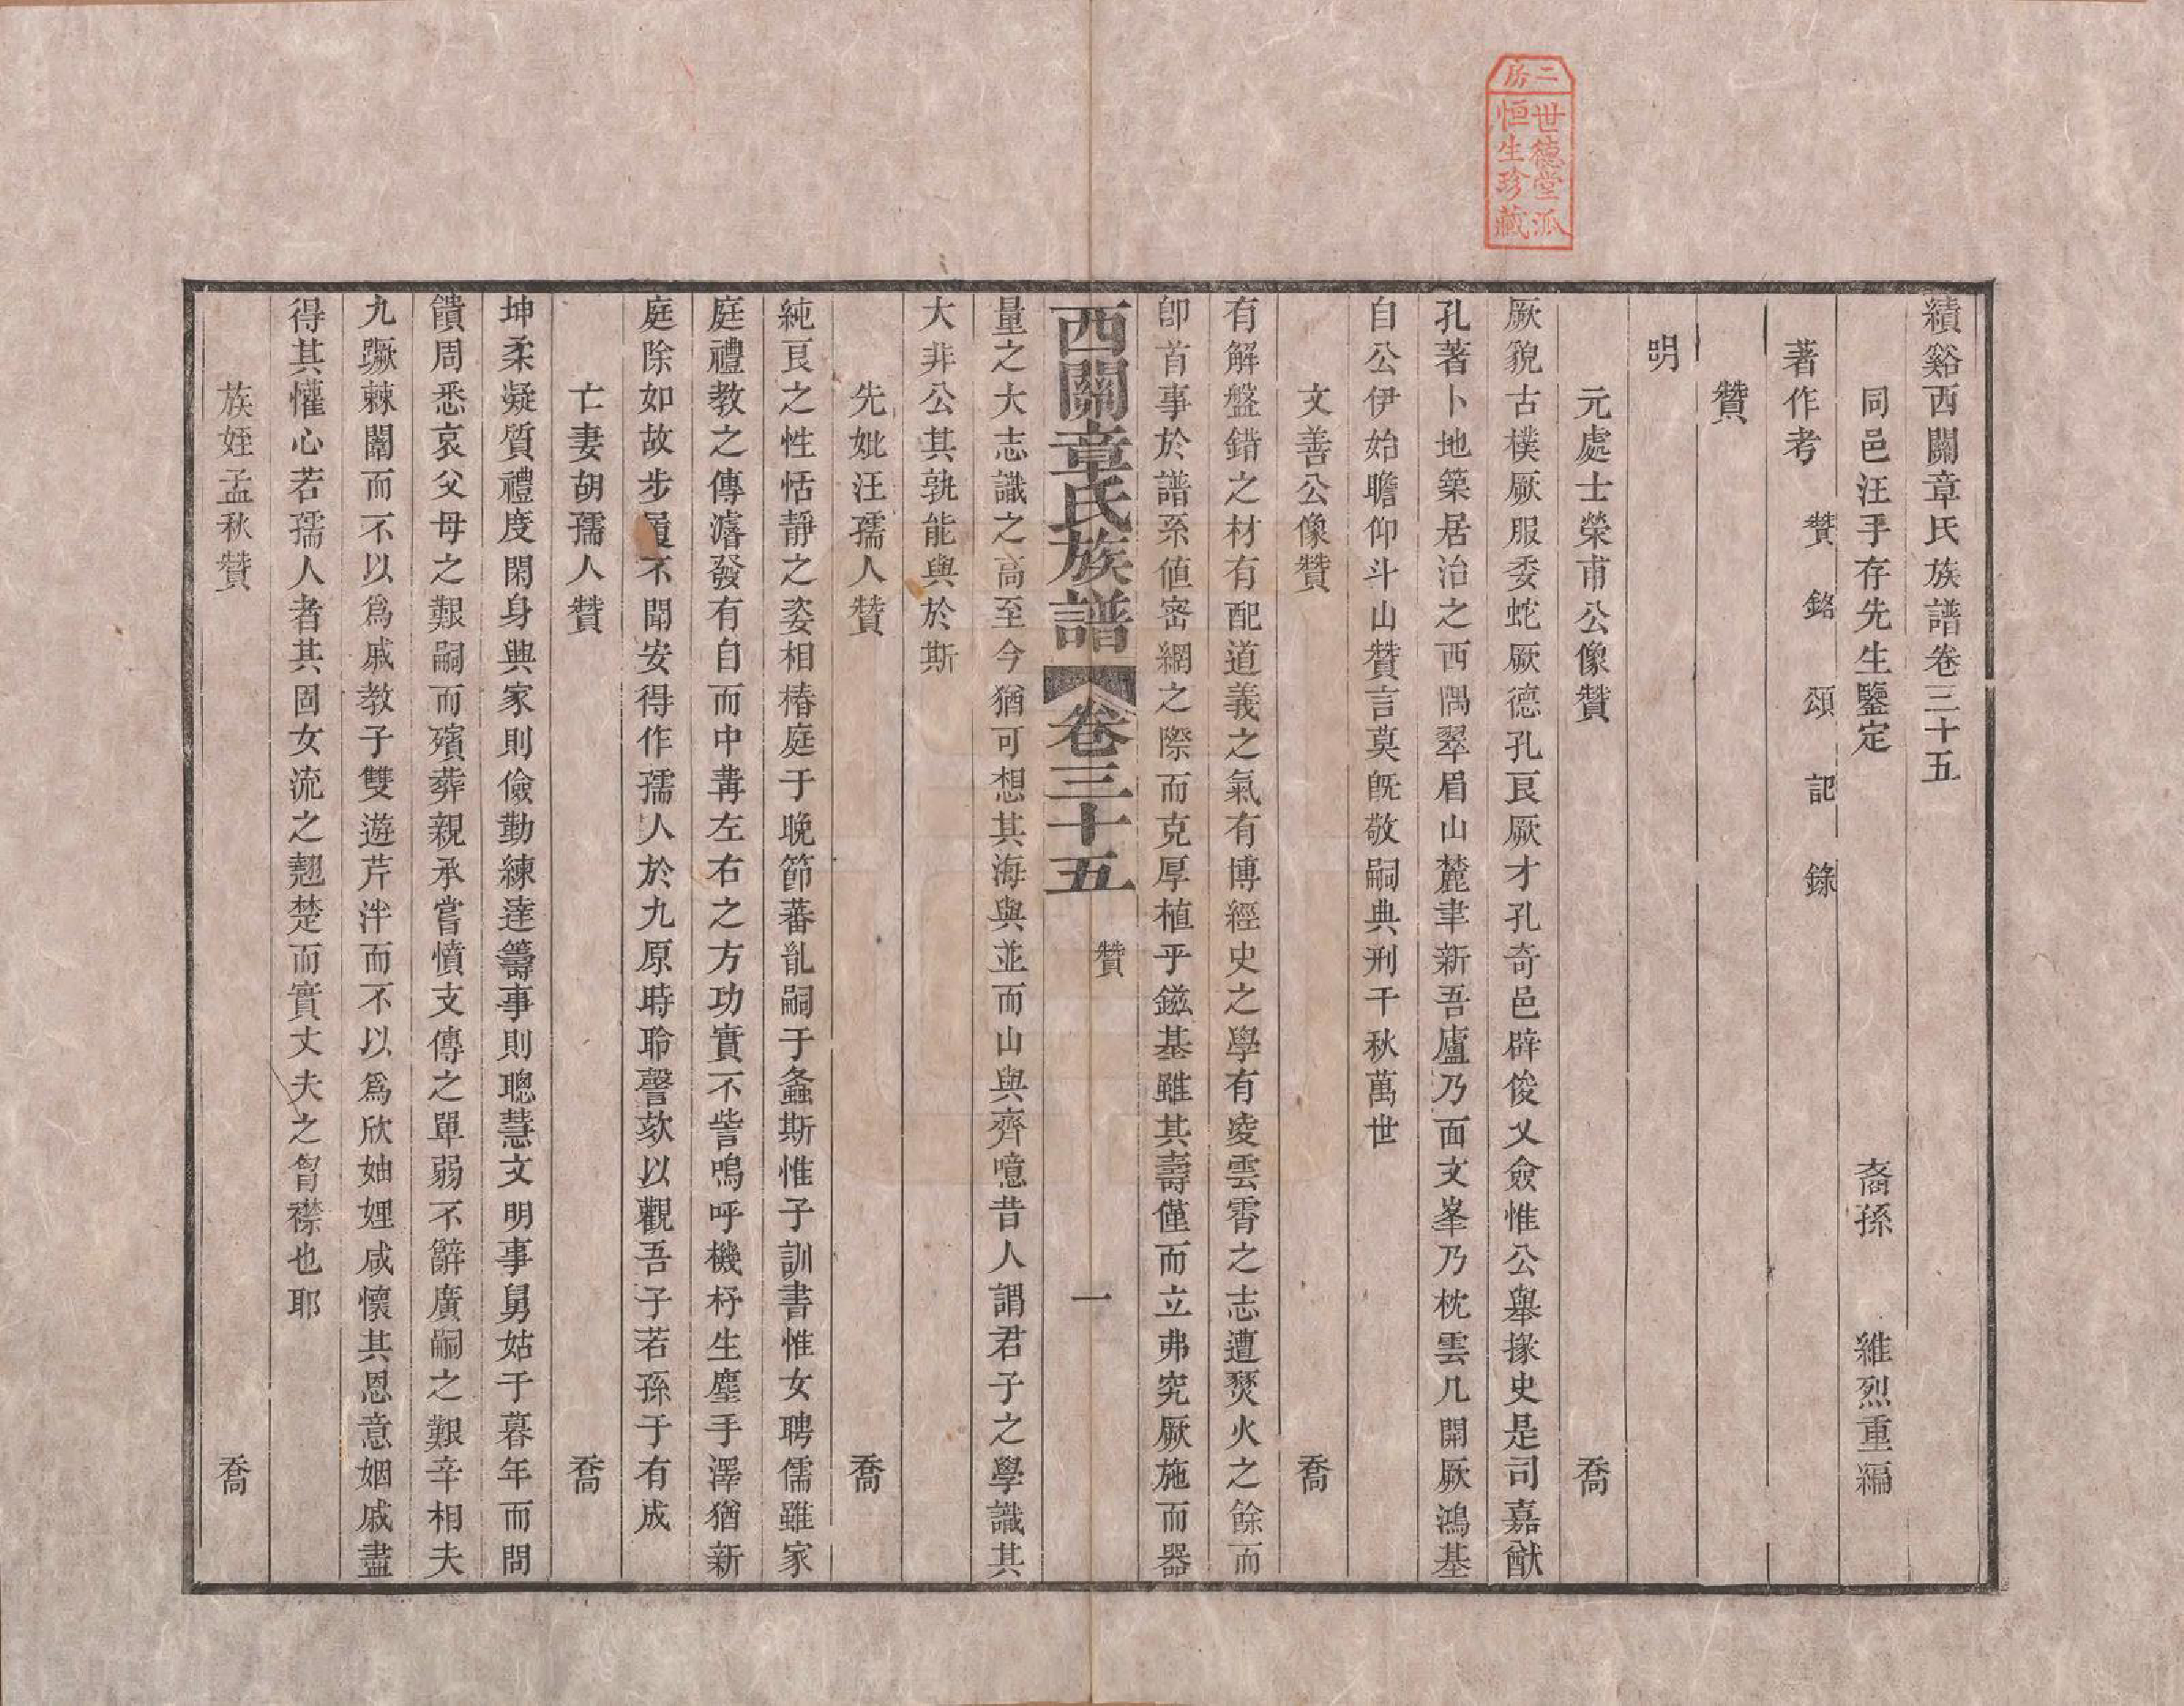 二房
世德堂派
恒生珍藏
績谿西關章氏族譜卷三十五
同邑汪手存先生鑒定　裔孫　維烈重編
著作考　贊　銘　頌　記　錄
贊
明
元處士榮甫公像贊　喬
厥貌古樸厥服委蛇厥德孔良厥才孔奇邑辟俊乂僉惟公舉掾史是司嘉猷
孔著卜地築居治之西隅翠眉山麓聿新吾廬乃面文峯乃枕雲几開厥鴻基
自公伊始瞻仰斗山贊言莫旣敬嗣典刑千秋萬世
文善公像贊　喬
有解盤錯之材有配道義之氣有博經史之學有凌雲霄之志遭燹火之餘而
卽首事於譜系値密網之際而克厚植乎鎡基雖其壽僅而立弗究厥施而器
西關章氏族譜　卷三十五　贊　一
量之大志識之高至今猶可想其海與並而山與齊噫昔人謂君子之學識其
大非公其孰能與於斯
先妣汪孺人贊　喬
純良之性恬靜之姿相椿庭于晚節蕃亂嗣于螽斯惟子訓書惟女聘儒雖家
庭禮教之傳濬發有自而中冓左右之方功實不訾嗚呼機杼生塵手澤猶新
庭除如故步履不聞安得作孺人於九原時聆謦欬以觀吾子若孫于有成
亡妻胡孺人贊　喬
坤柔凝質禮度閑身與家則儉勤練達籌事則聰慧文明事舅姑于暮年而問
饋周悉哀父母之艱嗣而殯葬親承嘗憤支傳之單弱不辭廣嗣之艱辛相夫
九蹶棘闈而不以爲戚教子雙遊芹泮而不以爲欣妯娌咸懷其恩意姻戚盡
得其懽心若孺人者其固女流之翹楚而實丈夫之胷襟也耶
族姪孟秋贊　喬